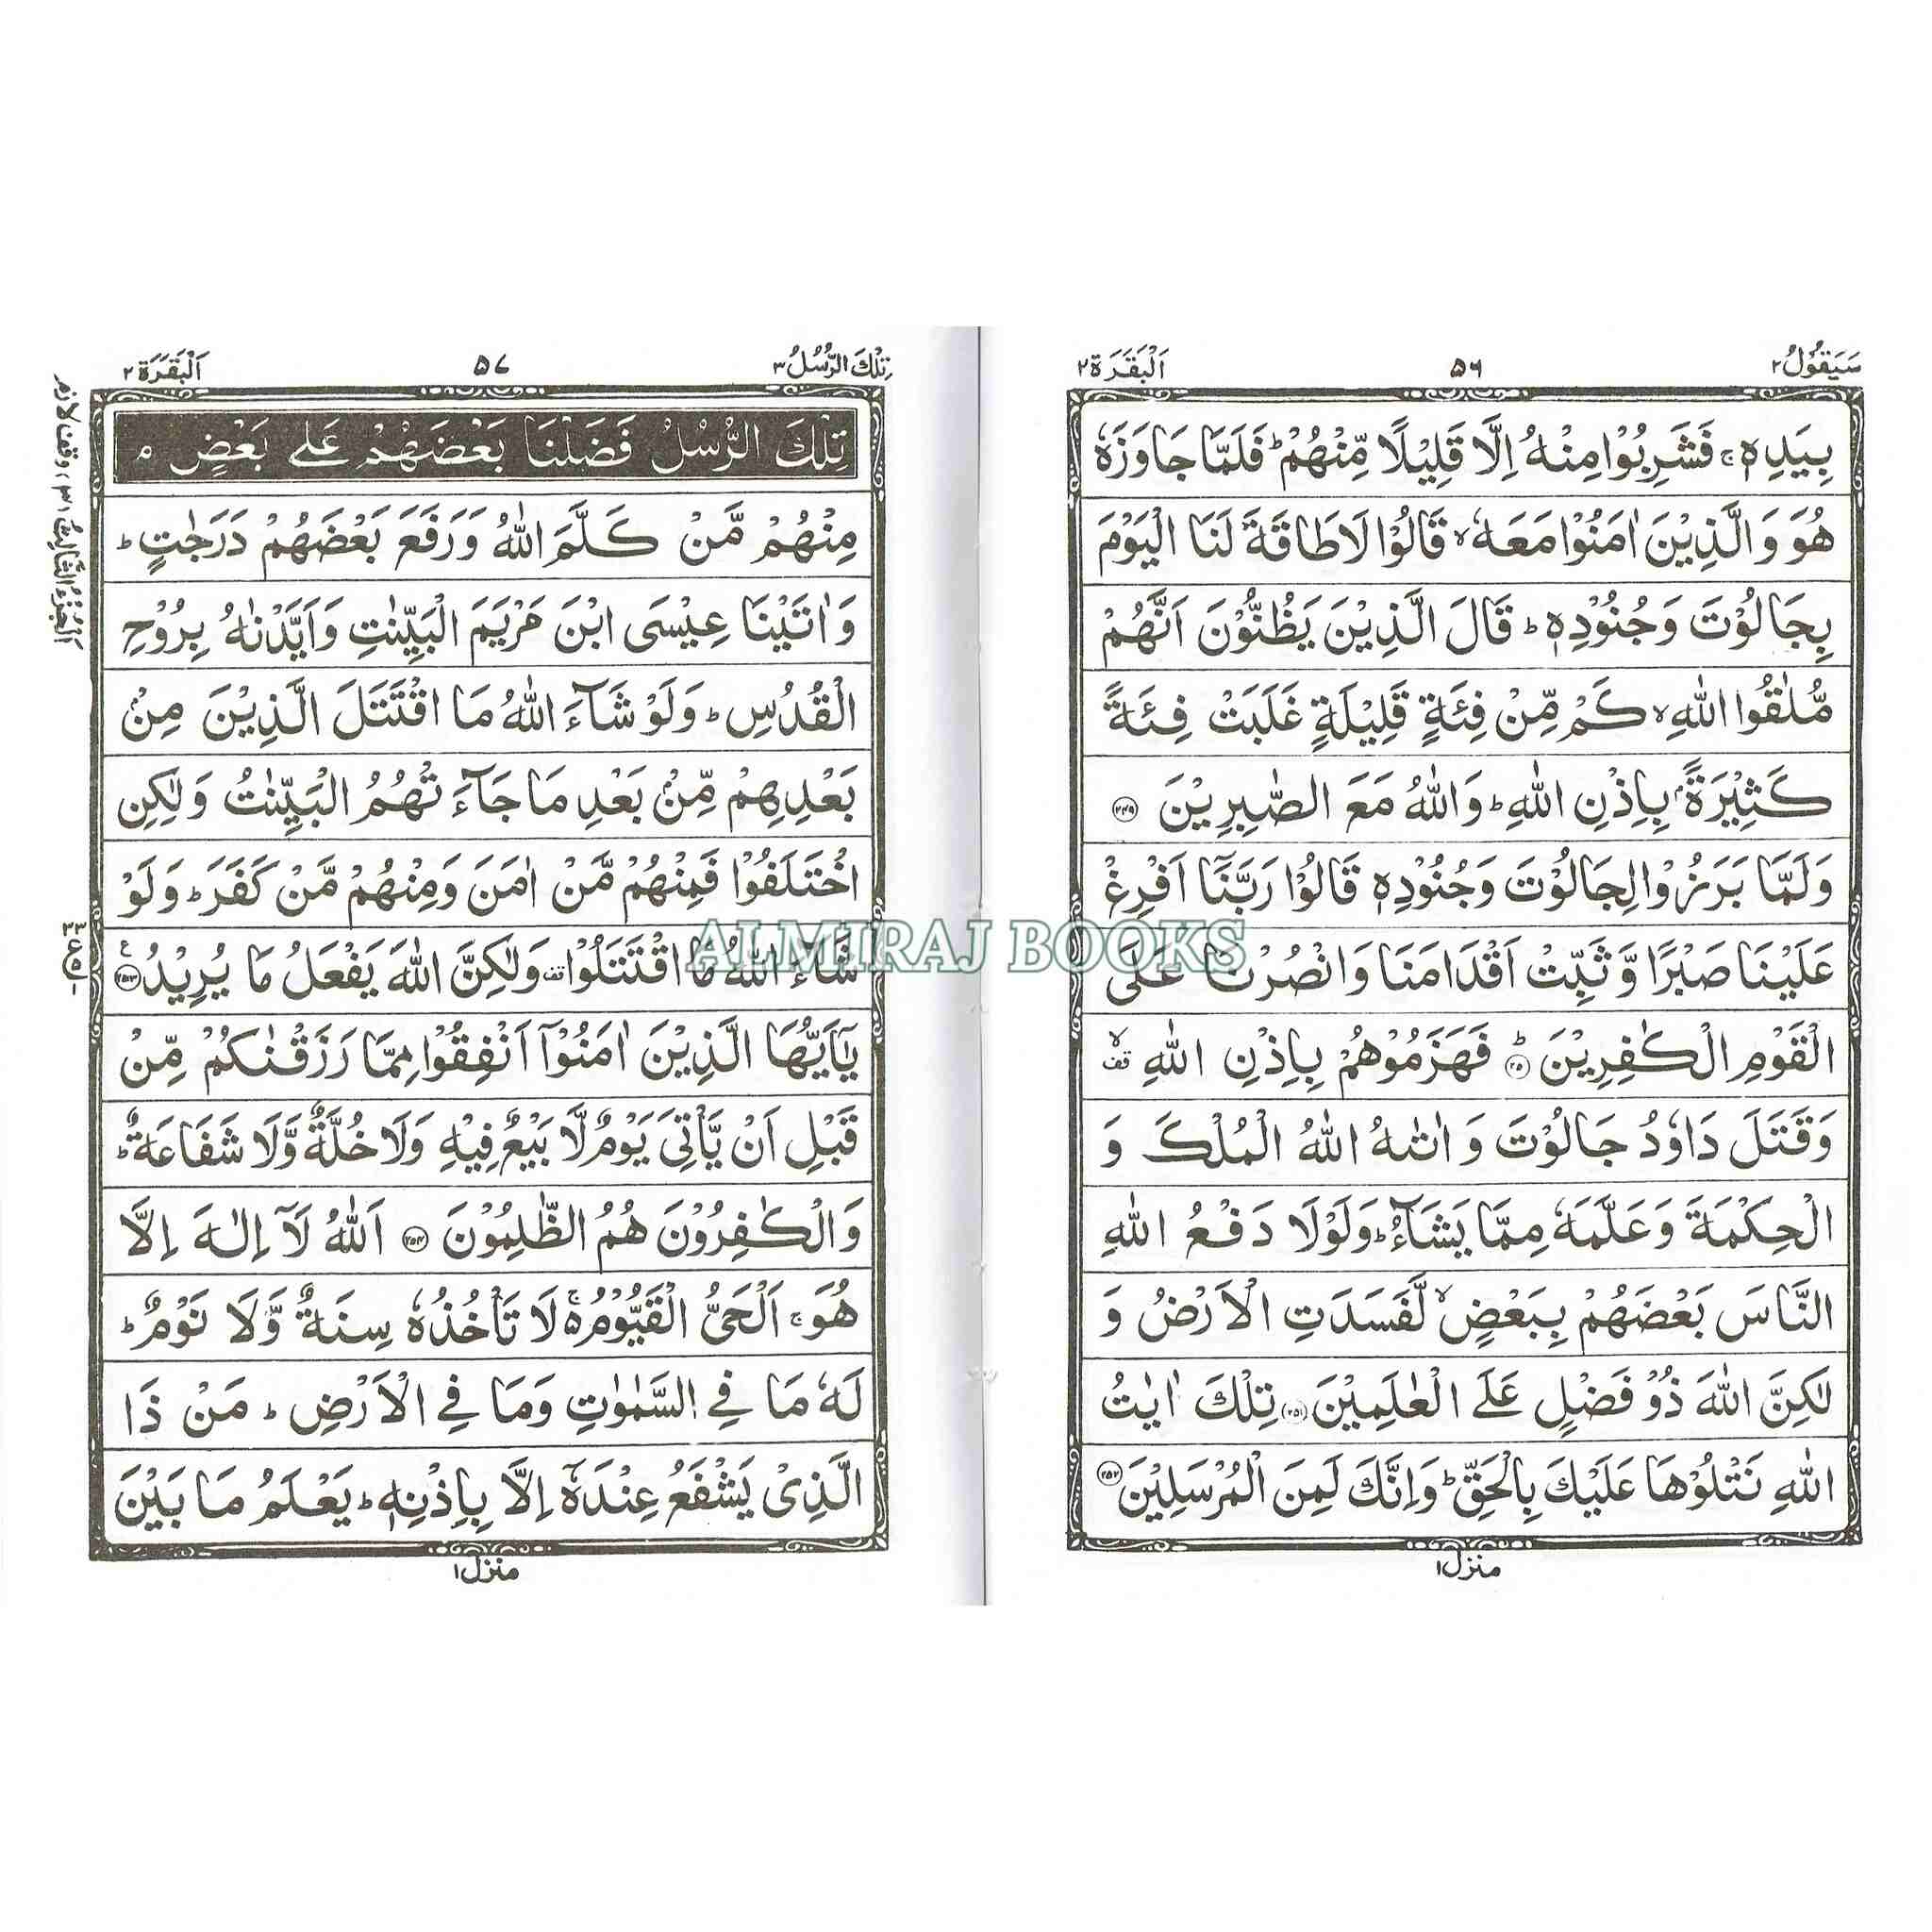 سَيَقُوْلُ ٢
٥٦
اَلْبَقَرَة ٢
بِيَدِهٖ ۚ فَشَرِبُوْا مِنْهُ اِلَّا قَلِيْلًا مِّنْهُمْ ؕ فَلَمَّا جَاوَزَهٗ
هُوَ وَالَّذِيْنَ اٰمَنُوْا مَعَهٗ ۙ قَالُوْا لَا طَاقَةَ لَنَا الْيَوْمَ
بِجَالُوْتَ وَجُنُوْدِهٖ ؕ قَالَ الَّذِيْنَ يَظُنُّوْنَ اَنَّهُمْ
مُّلٰقُوا اللّٰهِ ۙ كَمْ مِّنْ فِئَةٍ قَلِيْلَةٍ غَلَبَتْ فِئَةً
كَثِيْرَةًۢ بِاِذْنِ اللّٰهِ ؕ وَاللّٰهُ مَعَ الصّٰبِرِيْنَ ﴿٢٤٩﴾
وَلَمَّا بَرَزُوْا لِجَالُوْتَ وَجُنُوْدِهٖ قَالُوْا رَبَّنَاۤ اَفْرِغْ
عَلَيْنَا صَبْرًا وَّثَبِّتْ اَقْدَامَنَا وَانْصُرْنَا عَلَى
الْقَوْمِ الْكٰفِرِيْنَ ؕ ﴿٢٥٠﴾ فَهَزَمُوْهُمْ بِاِذْنِ اللّٰهِ ۙ قف
وَقَتَلَ دَاوٗدُ جَالُوْتَ وَاٰتٰىهُ اللّٰهُ الْمُلْكَ وَ
الْحِكْمَةَ وَعَلَّمَهٗ مِمَّا يَشَآءُ ؕ وَلَوْلَا دَفْعُ اللّٰهِ
النَّاسَ بَعْضَهُمْ بِبَعْضٍ ۙ لَّفَسَدَتِ الْاَرْضُ وَ
لٰكِنَّ اللّٰهَ ذُوْ فَضْلٍ عَلَى الْعٰلَمِيْنَ ﴿٢٥١﴾ تِلْكَ اٰيٰتُ
اللّٰهِ نَتْلُوْهَا عَلَيْكَ بِالْحَقِّ ؕ وَاِنَّكَ لَمِنَ الْمُرْسَلِيْنَ ﴿٢٥٢﴾
منزل ١
تِلْكَ الرُّسُلُ ٣
٥٧
اَلْبَقَرَة ٢
تِلْكَ الرُّسُلُ فَضَّلْنَا بَعْضَهُمْ عَلٰى بَعْضٍ ۘ
مِنْهُمْ مَّنْ كَلَّمَ اللّٰهُ وَرَفَعَ بَعْضَهُمْ دَرَجٰتٍ ؕ
وَاٰتَيْنَا عِيْسَى ابْنَ مَرْيَمَ الْبَيِّنٰتِ وَاَيَّدْنٰهُ بِرُوْحِ
الْقُدُسِ ؕ وَلَوْ شَآءَ اللّٰهُ مَا اقْتَتَلَ الَّذِيْنَ مِنْۢ
بَعْدِهِمْ مِّنْۢ بَعْدِ مَا جَآءَتْهُمُ الْبَيِّنٰتُ وَلٰكِنِ
اخْتَلَفُوْا فَمِنْهُمْ مَّنْ اٰمَنَ وَمِنْهُمْ مَّنْ كَفَرَ ؕ وَلَوْ
شَآءَ اللّٰهُ مَا اقْتَتَلُوْا قف وَلٰكِنَّ اللّٰهَ يَفْعَلُ مَا يُرِيْدُ ﴿٢٥٣﴾ ع
يٰۤاَيُّهَا الَّذِيْنَ اٰمَنُوْۤا اَنْفِقُوْا مِمَّا رَزَقْنٰكُمْ مِّنْ
قَبْلِ اَنْ يَّاْتِيَ يَوْمٌ لَّا بَيْعٌ فِيْهِ وَلَا خُلَّةٌ وَّلَا شَفَاعَةٌ ؕ
وَالْكٰفِرُوْنَ هُمُ الظّٰلِمُوْنَ ﴿٢٥٤﴾ اَللّٰهُ لَاۤ اِلٰهَ اِلَّا
هُوَ ۚ اَلْحَيُّ الْقَيُّوْمُ ۚ۬ لَا تَاْخُذُهٗ سِنَةٌ وَّلَا نَوْمٌ ؕ
لَهٗ مَا فِي السَّمٰوٰتِ وَمَا فِي الْاَرْضِ ؕ مَنْ ذَا
الَّذِيْ يَشْفَعُ عِنْدَهٗۤ اِلَّا بِاِذْنِهٖ ؕ يَعْلَمُ مَا بَيْنَ
منزل ١
اَلْجُزْءُ الثَّالِثُ ٣، وقف لازم
ALMIRAJ BOOKS